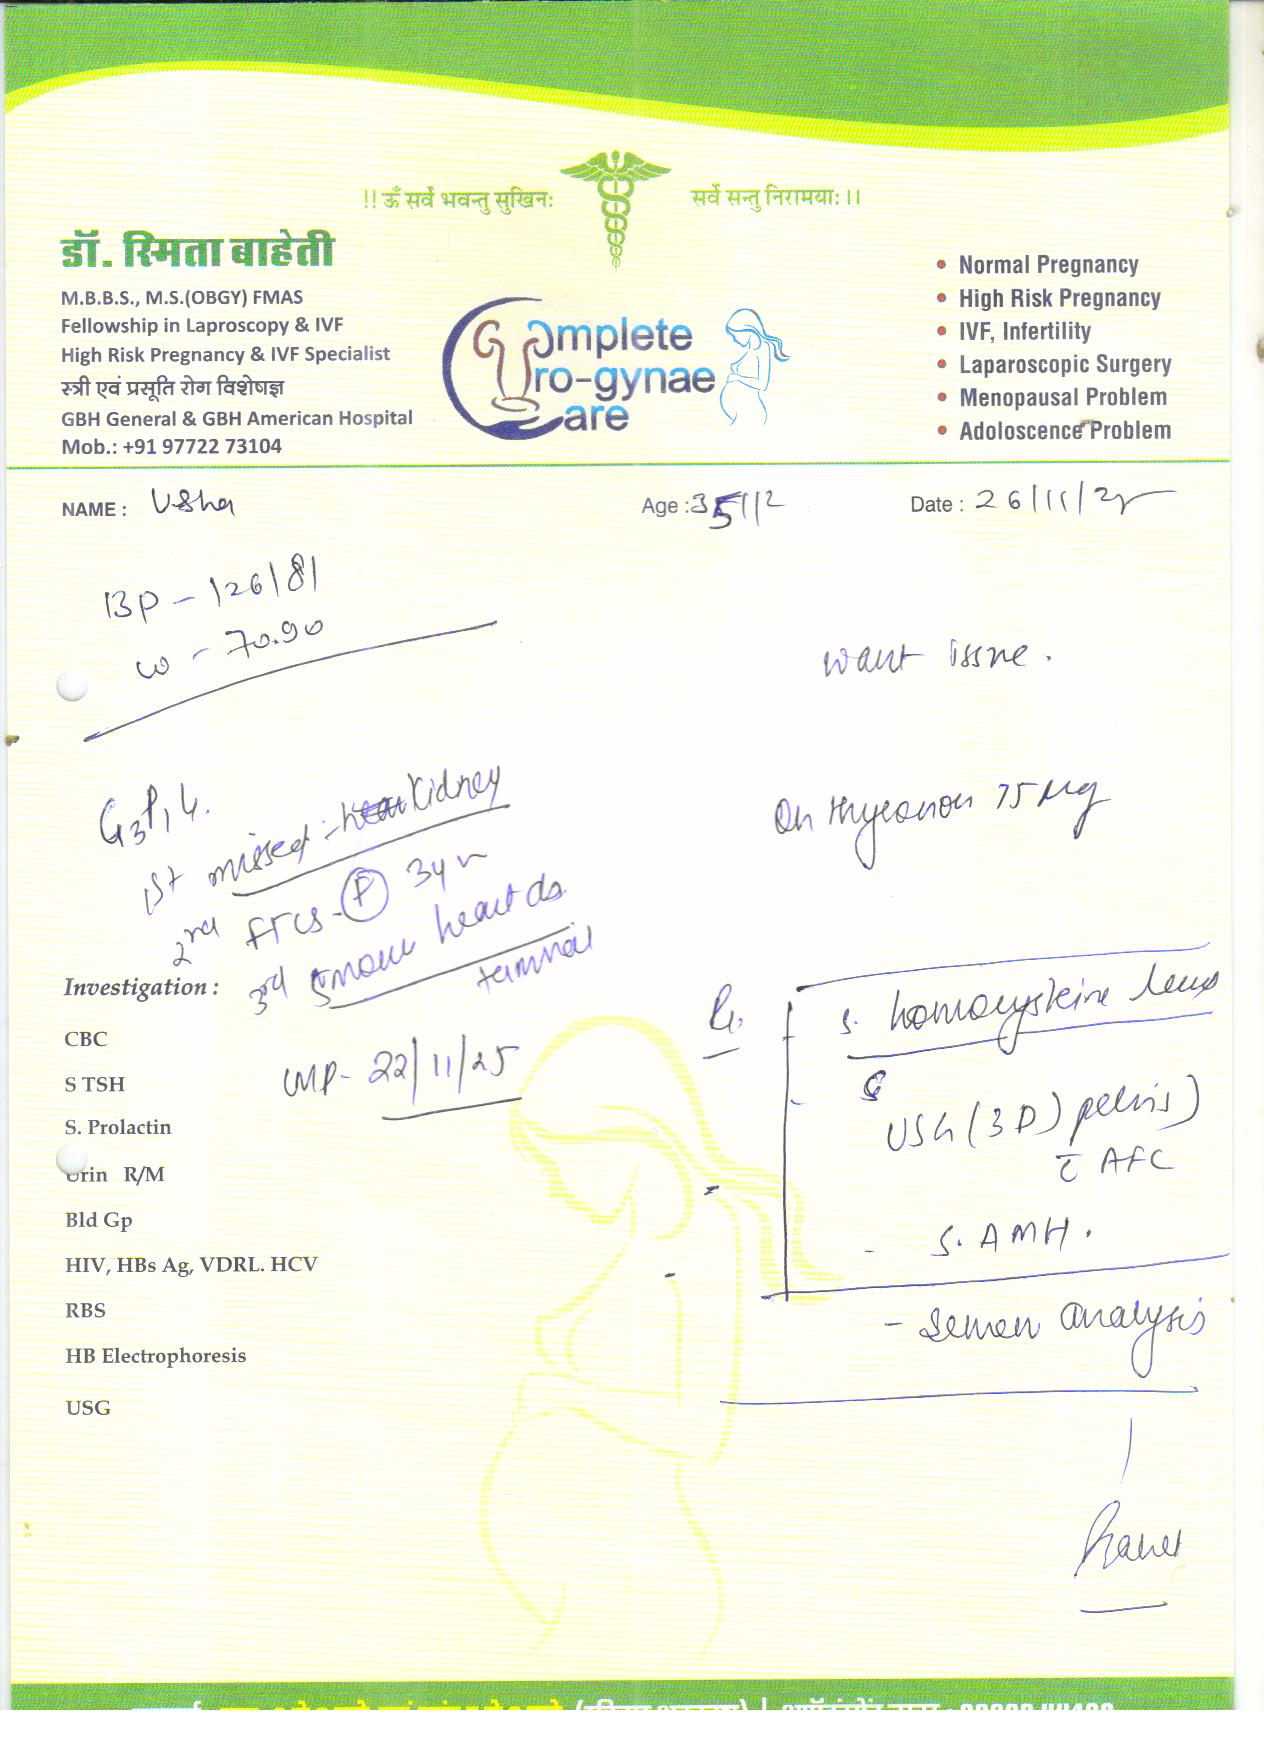 !! ॐ सर्वे भवन्तु सुखिनः सर्वे सन्तु निरामयाः ।।
डॉ. स्मिता बाहेती
M.B.B.S., M.S.(OBGY) FMAS
Fellowship in Laproscopy & IVF
High Risk Pregnancy & IVF Specialist
स्त्री एवं प्रसूति रोग विशेषज्ञ
GBH General & GBH American Hospital
Mob.: +91 97722 73104
Complete
Uro-gynae
Care
• Normal Pregnancy
• High Risk Pregnancy
• IVF, Infertility
• Laparoscopic Surgery
• Menopausal Problem
• Adoloscence Problem
NAME : Usha Age : 35 Date : 26/11/25
BP - 126/81
w - 70.90
want issue.
G3P1L
1st missed - Kidney
2nd FTCS - F 3yr
3rd heart ds
On Thyronorm 75 µg
Investigation :
CBC
S TSH
S. Prolactin
Urin R/M
Bld Gp
HIV, HBs Ag, VDRL. HCV
RBS
HB Electrophoresis
USG
LMP - 22/11/25
S. homocysteine
USG (3D) pelvis)
c̄ AFC
- S. AMH.
- Semen analysis